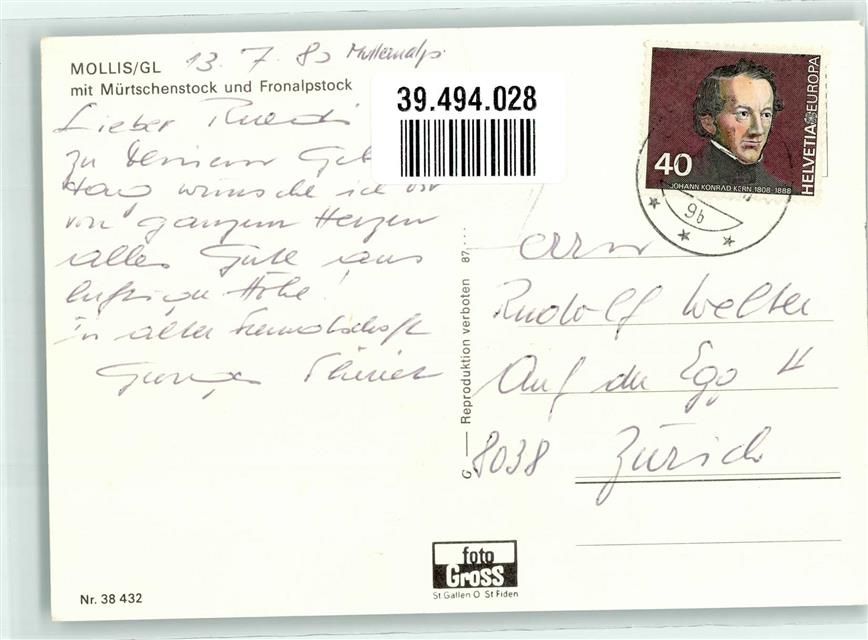 MOLLIS/GL 13. 7. 80
mit Mürtschenstock und Fronalpstock
39.494.028
Lieber Ruedi
zu deinem Geb
wünsche ich dir
von ganzem Herzen
alles Gute aus
luftiger Höhe!
in alter Freundschaft
40
JOHANN KONRAD KERN 1808-1888
HELVETIA EUROPA
9b
Herrn
Rudolf Welter
Auf der Egg
8038 Zürich
G — Reproduktion verboten 87....
foto
Gross
St Gallen O St Fiden
Nr. 38 432